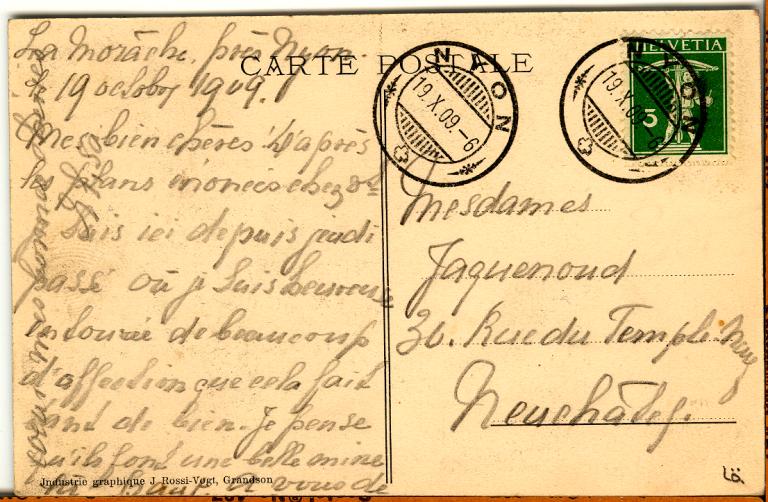 CARTE POSTALE
La Morâche, près Nyon.
19 octobre 1909.
Mes bien chères! D'après
les plans énoncés chez
je suis ici depuis jeudi
passé où je suis heureuse
entourée de beaucoup
d'affection que cela fait
tant de bien. Je pense
qu'ils font une belle mine
là haut. à vous de
Industrie graphique J Rossi-Vogt, Grandson
NYON
19.X.09.-6
NYON
19.X.09.-6
HELVETIA
5
Mesdames
Jaquenoud
30. Rue du Temple Neuf
Neuchâtel.